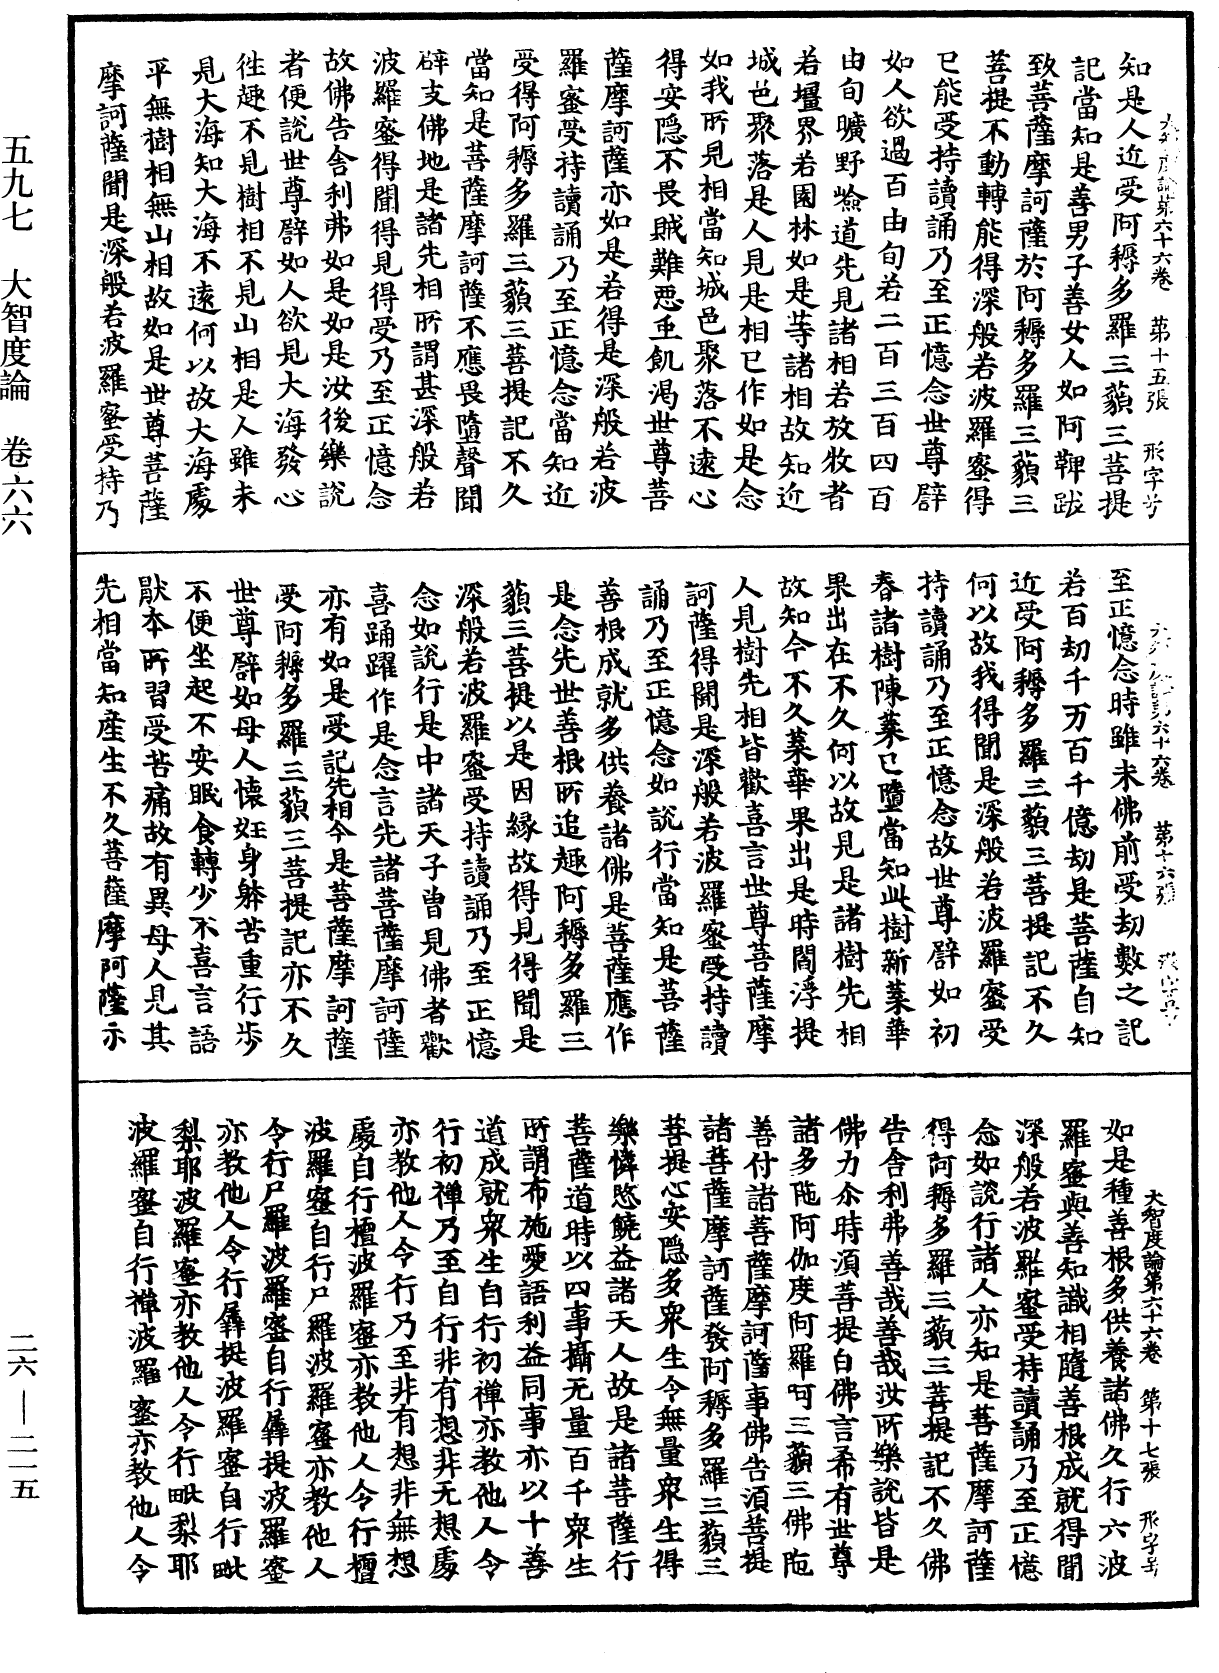 大智度論第六十六卷 第十五張 形字号
知是人近受阿耨多羅三藐三菩提
記當知是善男子善女人如阿鞞跋
致菩薩摩訶薩於阿耨多羅三藐三
菩提不動轉能得深般若波羅蜜得
已能受持讀誦乃至正憶念世尊譬
如人欲過百由旬若二百三百四百
由旬曠野嶮道先見諸相若放牧者
若壃界若園林如是等諸相故知近
城邑聚落是人見是相已作如是念
如我所見相當知城邑聚落不遠心
得安隱不畏賊難惡虫飢渴世尊菩
薩摩訶薩亦如是若得是深般若波
羅蜜受持讀誦乃至正憶念當知近
受得阿耨多羅三藐三菩提記不久
當知是菩薩摩訶薩不應畏墮聲聞
辟支佛地是諸先相所謂甚深般若
波羅蜜得聞得見得受乃至正憶念
故佛告舍利弗如是如是汝後樂說
者便說世尊譬如人欲見大海發心
往趣不見樹相不見山相是人雖未
見大海知大海不遠何以故大海處
平無樹相無山相故如是世尊菩薩
摩訶薩聞是深般若波羅蜜受持乃
六十六卷 第十六張
至正憶念時雖未佛前受劫數之記
若百劫千万百千億劫是菩薩自知
近受阿耨多羅三藐三菩提記不久
何以故我得聞是深般若波羅蜜受
持讀誦乃至正憶念故世尊譬如初
春諸樹陳葉已墮當知此樹新葉華
果出在不久何以故見是諸樹先相
故知今不久葉華果出是時閻浮提
人見樹先相皆歡喜言世尊菩薩摩
訶薩得聞是深般若波羅蜜受持讀
誦乃至正憶念如說行當知是菩薩
善根成就多供養諸佛是菩薩應作
是念先世善根所追趣阿耨多羅三
藐三菩提以是因緣故得見得聞是
深般若波羅蜜受持讀誦乃至正憶
念如說行是中諸天子曾見佛者歡
喜踊躍作是念言先諸菩薩摩訶薩
亦有如是受記先相今是菩薩摩訶薩
受阿耨多羅三藐三菩提記亦不久
世尊譬如母人懷妊身躰苦重行步
不便坐起不安眠食轉少不喜言語
猒本所習受苦痛故有異母人見其
先相當知産生不久菩薩摩阿薩示
大智度論第六十六卷 第十七張 形字号
如是種善根多供養諸佛久行六波
羅蜜與善知識相隨善根成就得聞
深般若波羅蜜受持讀誦乃至正憶
念如說行諸人亦知是菩薩摩訶薩
得阿耨多羅三藐三菩提記不久佛
告舍利弗善哉善哉汝所樂說皆是
佛力尒時須菩提白佛言希有世尊
諸多陁阿伽度阿羅呵三藐三佛陁
善付諸菩薩摩訶薩事佛告須菩提
諸菩薩摩訶薩發阿耨多羅三藐三
菩提心安隱多衆生令無量衆生得
樂憐愍饒益諸天人故是諸菩薩行
菩薩道時以四事攝无量百千衆生
所謂布施愛語利益同事亦以十善
道成就衆生自行初禪亦教他人令
行初禪乃至自行非有想非无想處
亦教他人令行乃至非有想非無想
處自行檀波羅蜜亦教他人令行檀
波羅蜜自行尸羅波羅蜜亦教他人
令行尸羅波羅蜜自行羼提波羅蜜
亦教他人令行羼提波羅蜜自行毗
梨耶波羅蜜亦教他人令行毗梨耶
波羅蜜自行禪波羅蜜亦教他人令
五九七 大智度論 卷六六
二六—二一五